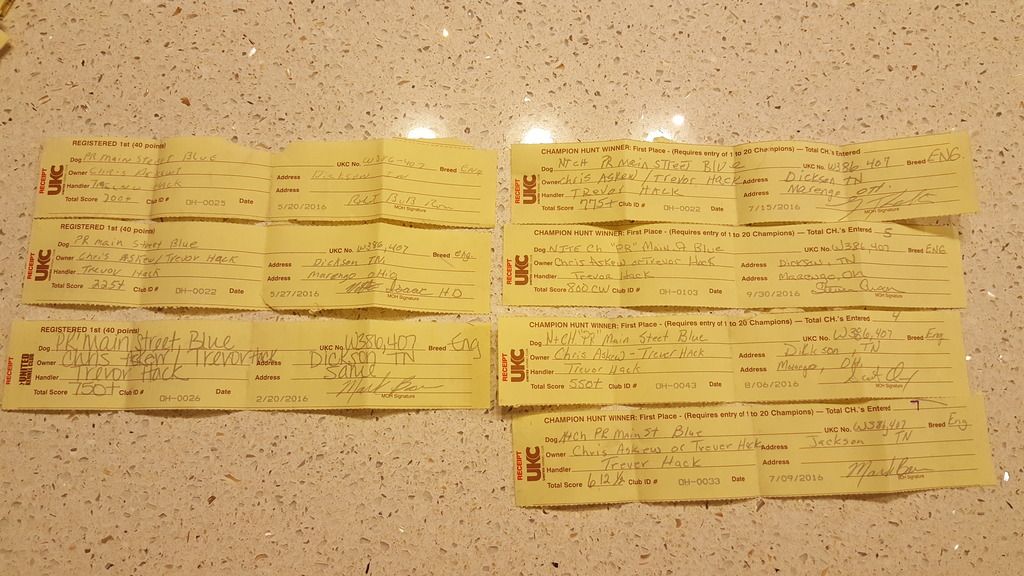 RECEIPT
UKC
REGISTERED 1st (40 points)
Dog PR Main Street Blue UKC No. W386-407 Breed Eng
Owner Chris Askew Address Dickson TN
Handler Hack Address
Total Score 200+ Club ID # OH-0025 Date 5/20/2016 MOH Signature
RECEIPT
UKC
REGISTERED 1st (40 points)
Dog PR main Street Blue UKC No. W386,407 Breed Eng.
Owner Chris Askew/Trevor Hack Address Dickson, TN
Handler Trevor Hack Address Marengo ohio
Total Score 225+ Club ID # OH-0022 Date 5/27/2016 MOH Signature
RECEIPT
UNITED
REGISTERED 1st (40 points)
Dog PR Main Street Blue UKC No. W386,407 Breed Eng
Owner Chris Askew / Trevor Hack Address Dickson TN
Handler Trevor Hack Address Same
Total Score 750+ Club ID # OH-0026 Date 2/20/2016 MOH Signature
RECEIPT
UKC
CHAMPION HUNT WINNER: First Place - (Requires entry of 1 to 20 Champions) — Total CH.'s Entered
Dog NtCH PR Main STreet Blue UKC No. W386,407 Breed ENG.
Owner Chris Askew / Trevor Hack Address Dickson TN
Handler Trevor Hack Address Marengo OH.
Total Score 775+ Club ID # OH-0022 Date 7/15/2016 MOH Signature
RECEIPT
UKC
CHAMPION HUNT WINNER: First Place - (Requires entry of 1 to 20 Champions) — Total CH.'s Entered 5
Dog NITE Ch "PR" Main St Blue UKC No. W386,407 Breed ENG
Owner Chris Askew or Trevor Hack Address Dickson, TN
Handler Trevor Hack Address Marengo, OH
Total Score 800 CW Club ID # OH-0103 Date 9/30/2016 MOH Signature
RECEIPT
UKC
CHAMPION HUNT WINNER: First Place - (Requires entry of 1 to 20 Champions) — Total CH.'s Entered 4
Dog NtCH "PR" Main Street Blue UKC No. W386,407 Breed Eng
Owner Chris Askew - Trevor Hack Address Dickson, TN
Handler Trevor Hack Address Marengo, OH
Total Score 550+ Club ID # OH-0043 Date 8/06/2016 MOH Signature
RECEIPT
UKC
CHAMPION HUNT WINNER: First Place - (Requires entry of 1 to 20 Champions) — Total CH.'s Entered 7
Dog NtCh PR Main St Blue UKC No. W386,407 Breed Eng
Owner Chris Askew or Trever Hack Address Jackson TN
Handler Trever Hack Address
Total Score 612 ½ Club ID # OH-0033 Date 7/09/2016 MOH Signature